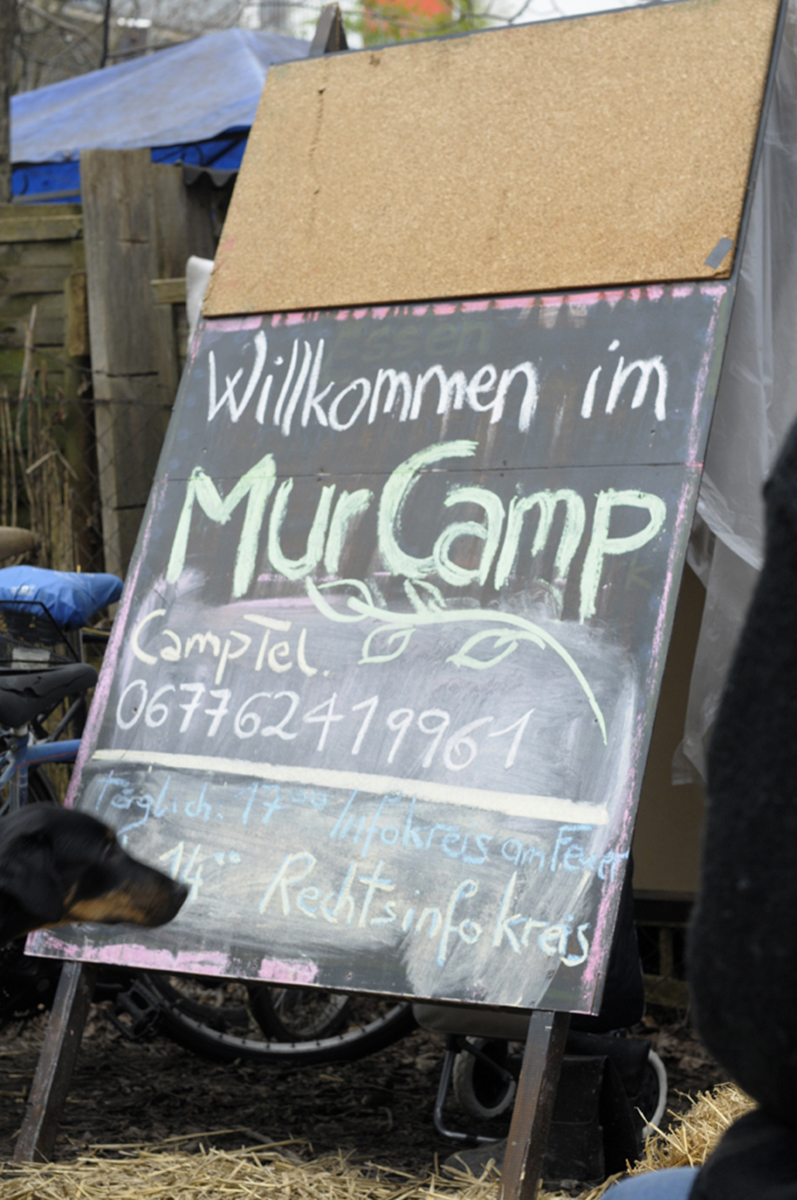 Essen
Willkommen im
MurCamp
CampTel.
067762419961
Täglich. 17⁰⁰ Infokreis am Feuer
14⁰⁰ Rechtsinfokreis